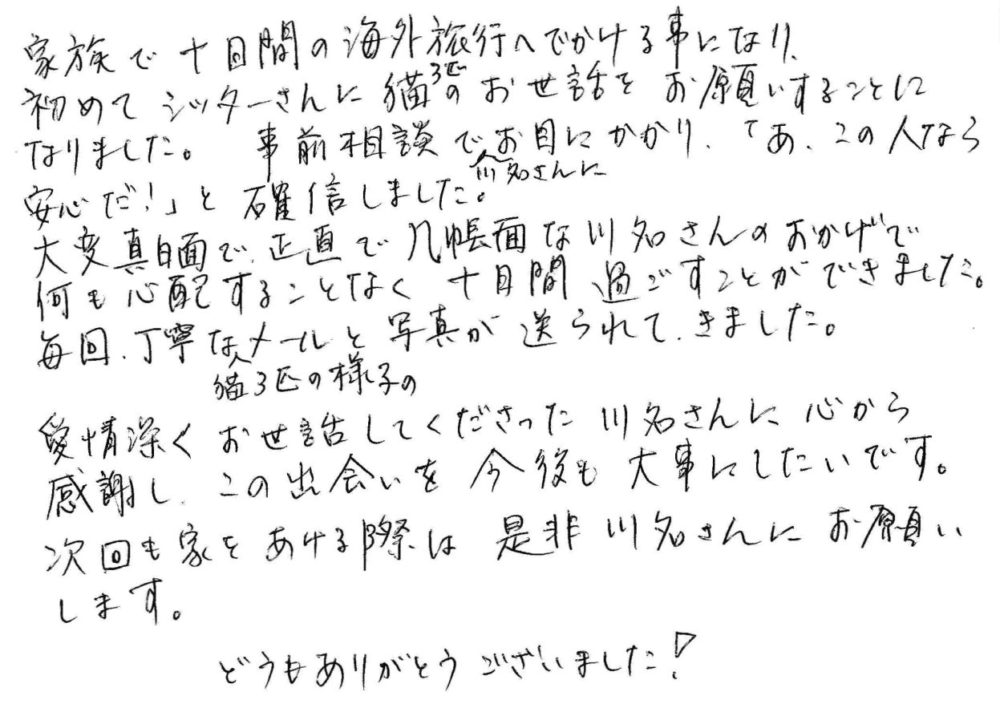 家族で十日間の海外旅行へでかける事になり、
初めてシッターさんに猫3匹のお世話をお願いすることに
なりました。 事前相談で川名さんにお目にかかり、「あ、この人なら
安心だ!」と確信しました。
大変真面目で、正直で几帳面な川名さんのおかげで
何も心配することなく十日間過ごすことができました。
毎回、丁寧な猫3匹の様子のメールと写真が送られて、きました。
愛情深くお世話してくださった川名さんに心から
感謝し、この出会いを今後も大事にしたいです。
次回も家をあける際は是非川名さんにお願い
します。
どうもありがとうございました!